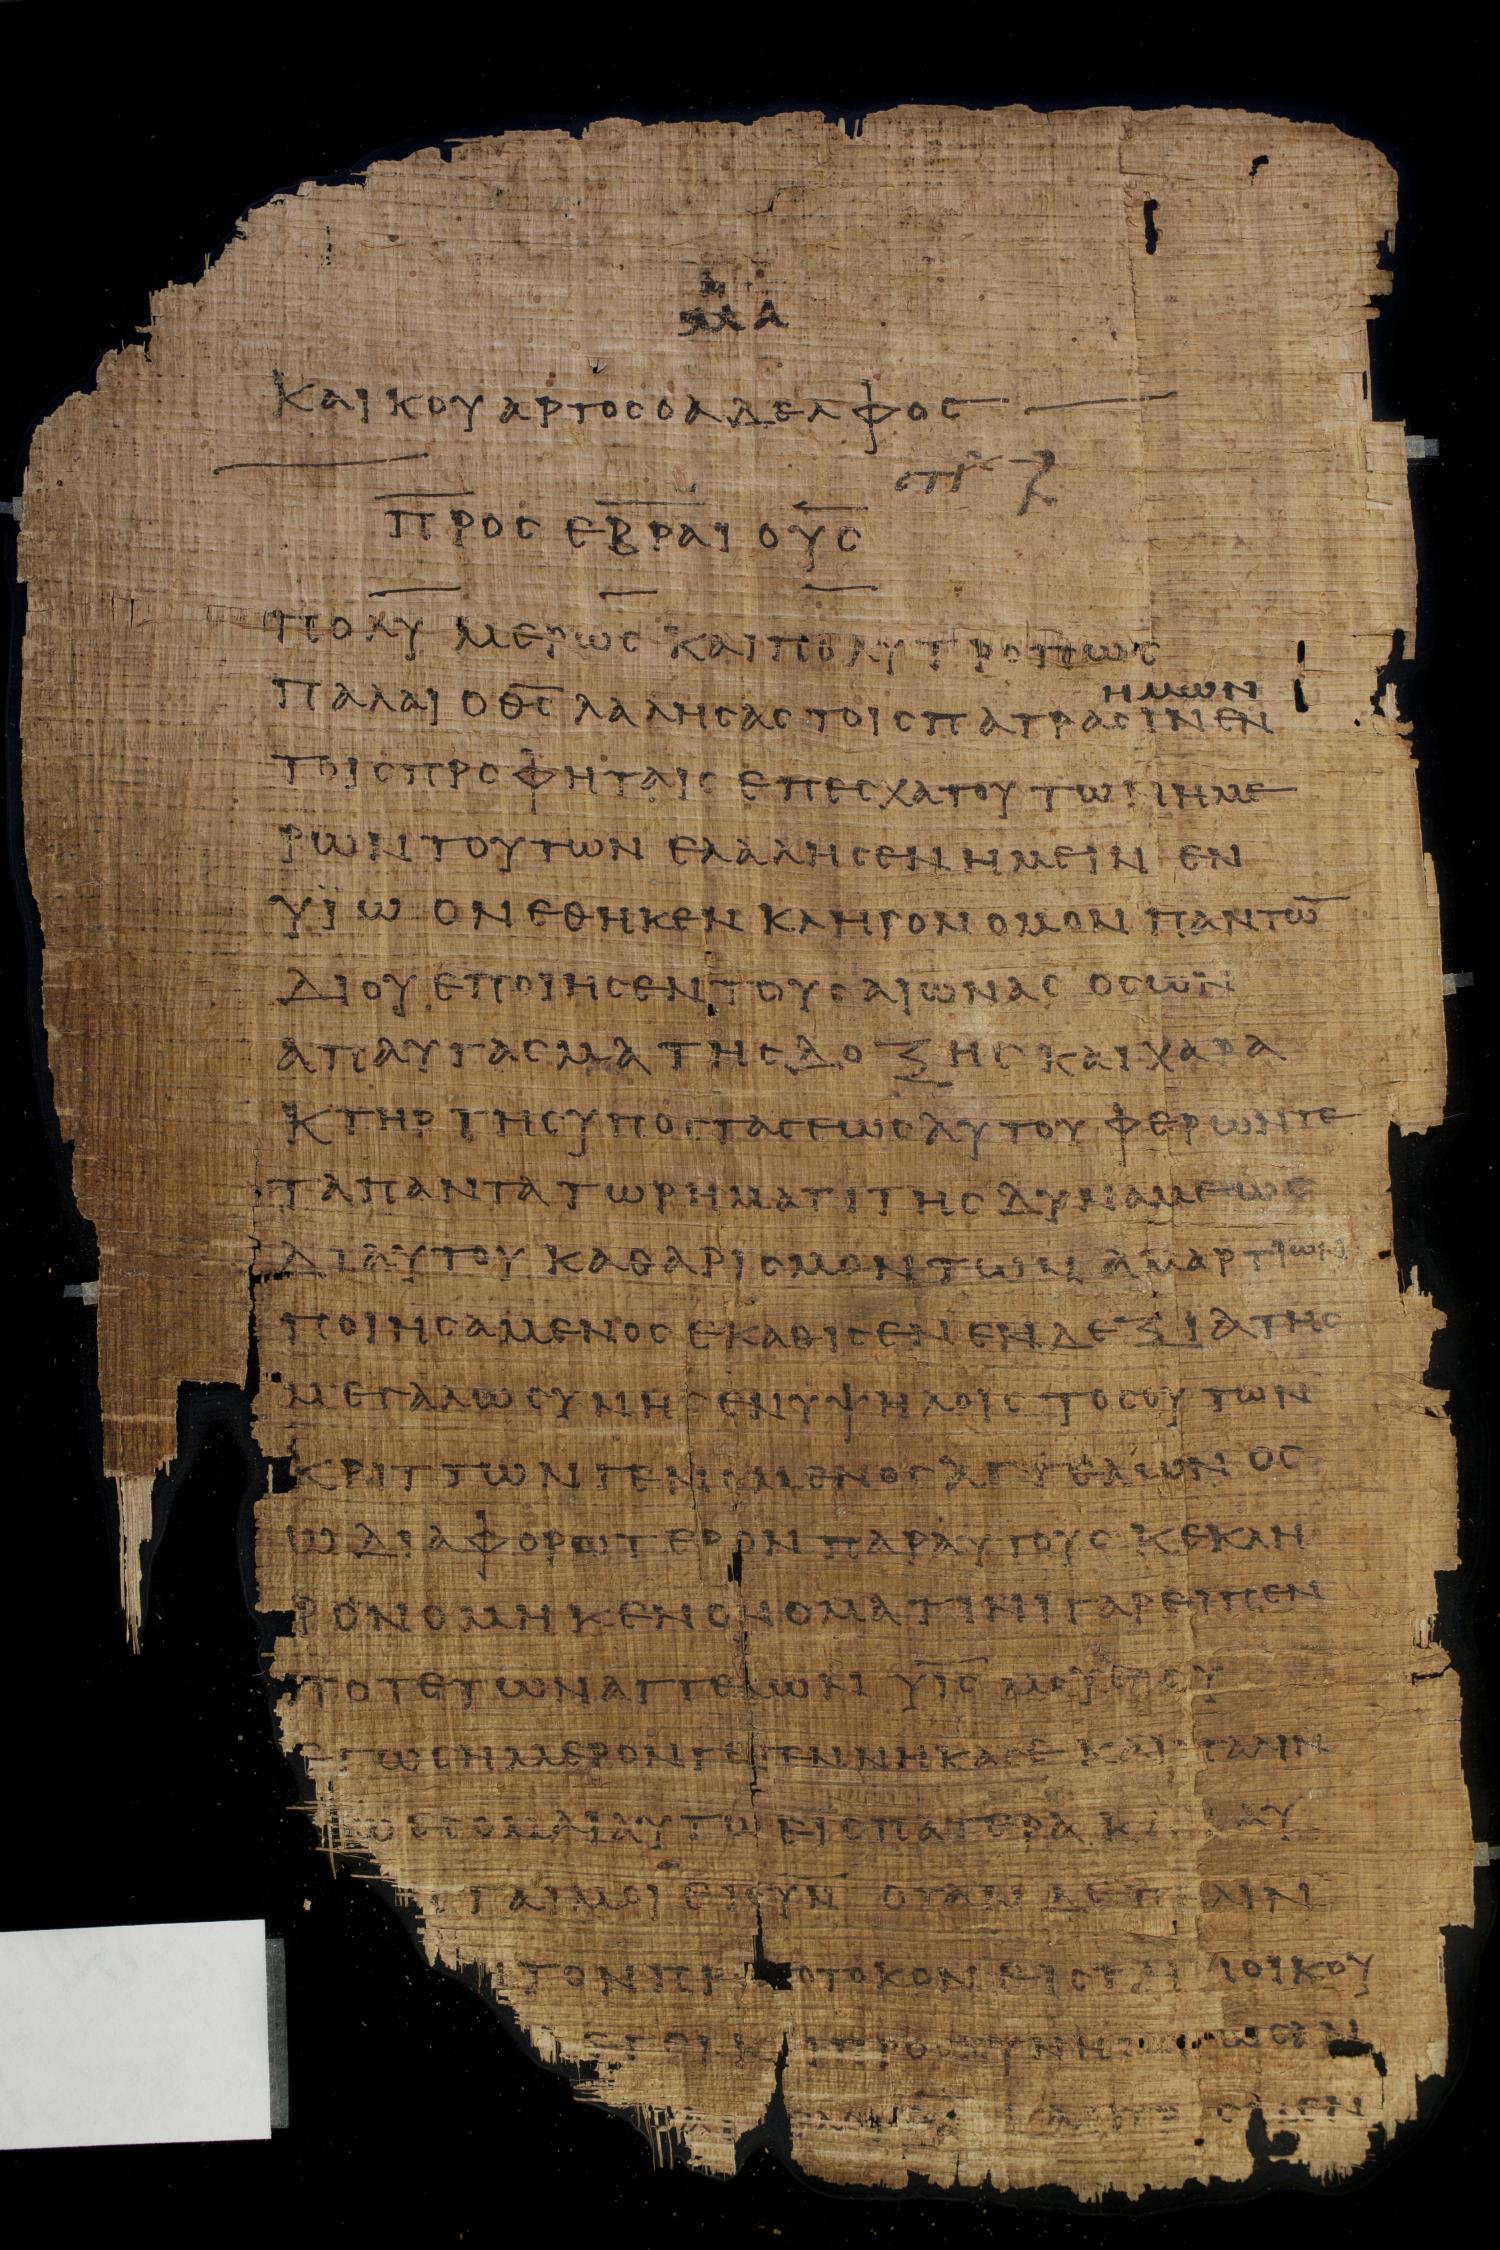 ΜΑ
ΚΑΙ ΚΟΥΑΡΤΟΣ Ο ΑΔΕΛΦΟΣ
ΠΡΟΣ ΕΒΡΑΙΟΥΣ
ΠΟΛΥΜΕΡΩΣ ΚΑΙ ΠΟΛΥΤΡΟΠΩΣ
ΗΜΩΝ
ΠΑΛΑΙ Ο Θ̅Σ̅ ΛΑΛΗΣΑΣ ΤΟΙΣ ΠΑΤΡΑΣΙΝ ΕΝ
ΤΟΙΣ ΠΡΟΦΗΤΑΙΣ ΕΠ ΕΣΧΑΤΟΥ ΤΩΝ ΗΜΕ
ΡΩΝ ΤΟΥΤΩΝ ΕΛΑΛΗΣΕΝ ΗΜΕΙΝ ΕΝ
ΥΪΩ ΟΝ ΕΘΗΚΕΝ ΚΛΗΡΟΝΟΜΟΝ ΠΑΝΤΩ̅
ΔΙ ΟΥ ΕΠΟΙΗΣΕΝ ΤΟΥΣ ΑΙΩΝΑΣ ΟΣ ΩΝ
ΑΠΑΥΓΑΣΜΑ ΤΗΣ ΔΟΞΗΣ ΚΑΙ ΧΑΡΑ
ΚΤΗΡ ΤΗΣ ΥΠΟΣΤΑΣΕΩΣ ΑΥΤΟΥ ΦΕΡΩΝ ΤΕ
ΤΑ ΠΑΝΤΑ ΤΩ ΡΗΜΑΤΙ ΤΗΣ ΔΥΝΑΜΕΩΣ
ΔΙ ΑΥΤΟΥ ΚΑΘΑΡΙΣΜΟΝ ΤΩΝ ΑΜΑΡΤΙΩΝ
ΠΟΙΗΣΑΜΕΝΟΣ ΕΚΑΘΙΣΕΝ ΕΝ ΔΕΞΙΑ ΤΗΣ
ΜΕΓΑΛΩΣΥΝΗΣ ΕΝ ΥΨΗΛΟΙΣ ΤΟΣΟΥΤΩΝ
ΚΡΙΤΤΩΝ ΓΕΝΟΜΕΝΟΣ ΑΓΓΕΛΩΝ ΟΣ
Ω ΔΙΑΦΟΡΩΤΕΡΟΝ ΠΑΡ ΑΥΤΟΥΣ ΚΕΚΛΗ
ΡΟΝΟΜΗΚΕΝ ΟΝΟΜΑ ΤΙΝΙ ΓΑΡ ΕΙΠΕΝ
ΠΟΤΕ ΤΩΝ ΑΓΓΕΛΩΝ Υ̅Ι̅Σ̅ ΜΟΥ ΕΙ ΣΥ
ΕΓΩ ΣΗΜΕΡΟΝ ΓΕΓΕΝΝΗΚΑ ΣΕ ΚΑΙ ΠΑΛΙΝ
ΕΓΩ ΕΣΟΜΑΙ ΑΥΤΩ ΕΙΣ ΠΑΤΕΡΑ ΚΑΙ ΑΥ
ΤΑΙ ΜΟΙ ΕΙΣ Υ̅Ν̅ ΟΤΑΝ ΔΕ ΠΑΛΙΝ
ΤΟΝ ΠΡΩΤΟΤΟΚΟΝ ΕΙΣ ΤΗΝ ΟΙΚΟΥ